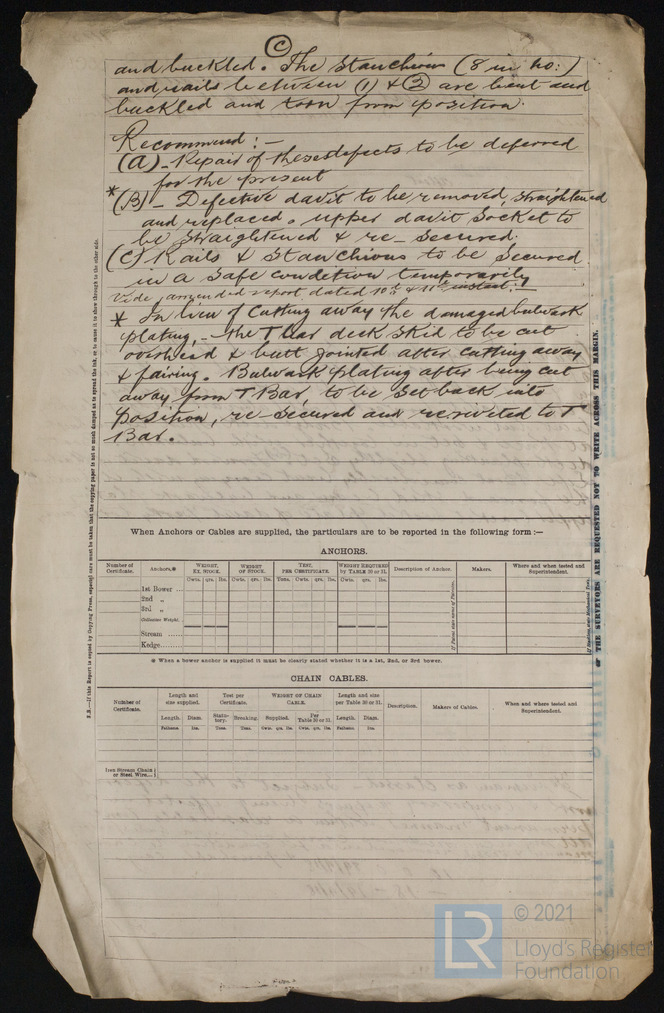 (C)
and buckled. The Stanchions (8 in no:)
and rails between (1) & (2) are bent and
buckled and torn from position.
Recommend:-
(A) - Repair of these defects to be deferred
for the present
* (B) - Defective davit to be removed, straightened
and replaced. upper davit socket to
be straightened & re-secured.
(C) Rails & Stanchions to be secured
in a safe condition temporarily
Vide amended report dated 10th & 11th instant:-
* In lieu of cutting away the damaged bulwark
plating, - the T bar deck skid to be cut
overhead & butt jointed after cutting away
& fairing. Bulwark plating after being cut
away from T Bar, to be set back into
position, re-secured and reriveted to T
Bar.
When Anchors or Cables are supplied, the particulars are to be reported in the following form:—
ANCHORS.
Number of Certificate. Anchors.* WEIGHT, EX. STOCK. WEIGHT OF STOCK. TEST, PER CERTIFICATE. WEIGHT REQUIRED by TABLE 30 or 31. Description of Anchor. Makers. Where and when tested and Superintendent.
Cwts. qrs. lbs. Cwts. qrs. lbs. Tons. Cwts. qrs. lbs. Cwts. qrs. lbs.
1st Bower
2nd „
3rd „
Collective Weight.
Stream
Kedge
* When a bower anchor is supplied it must be clearly stated whether it is a 1st, 2nd, or 3rd bower.
CHAIN CABLES.
Number of Certificate. Length and size supplied. Test per Certificate. WEIGHT OF CHAIN CABLE. Length and size per Table 30 or 31. Description. Makers of Cables. When and where tested and Superintendent.
Length. Diam. Statutory. Breaking. Supplied. Per Table 30 or 31. Length. Diam.
Fathoms. Ins. Tons. Tons. Cwts. qrs. lbs. Cwts. qrs. lbs. Fathoms. Ins.
Iron Stream Chain or Steel Wire
N.B.—If this Report is copied by Copying Press, especial care must be taken that the copying paper is not so much damped as to spread the ink, or to cause it to show through to the other side.
THE SURVEYORS ARE REQUESTED NOT TO WRITE ACROSS THIS MARGIN.
LR
© 2021
Lloyd's Register
Foundation